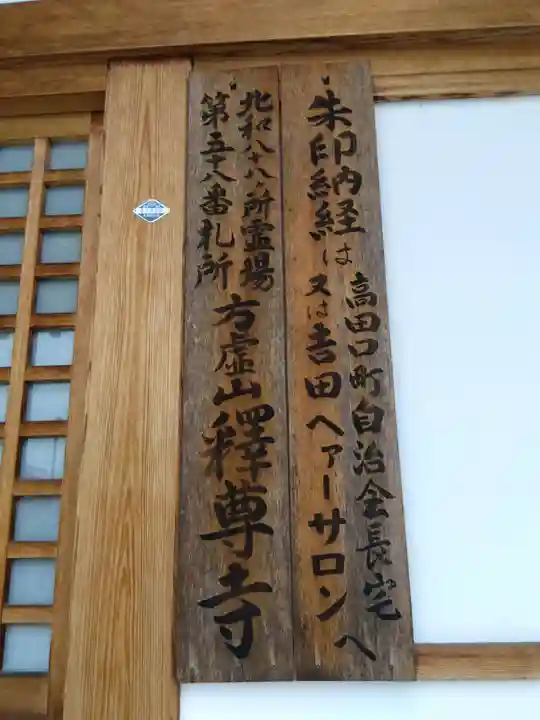 朱印納経は高田口町自治会長宅
又は吉田ヘァーサロンへ
北和八十八ヶ所霊場
第五十八番札所
方虚山釋尊寺